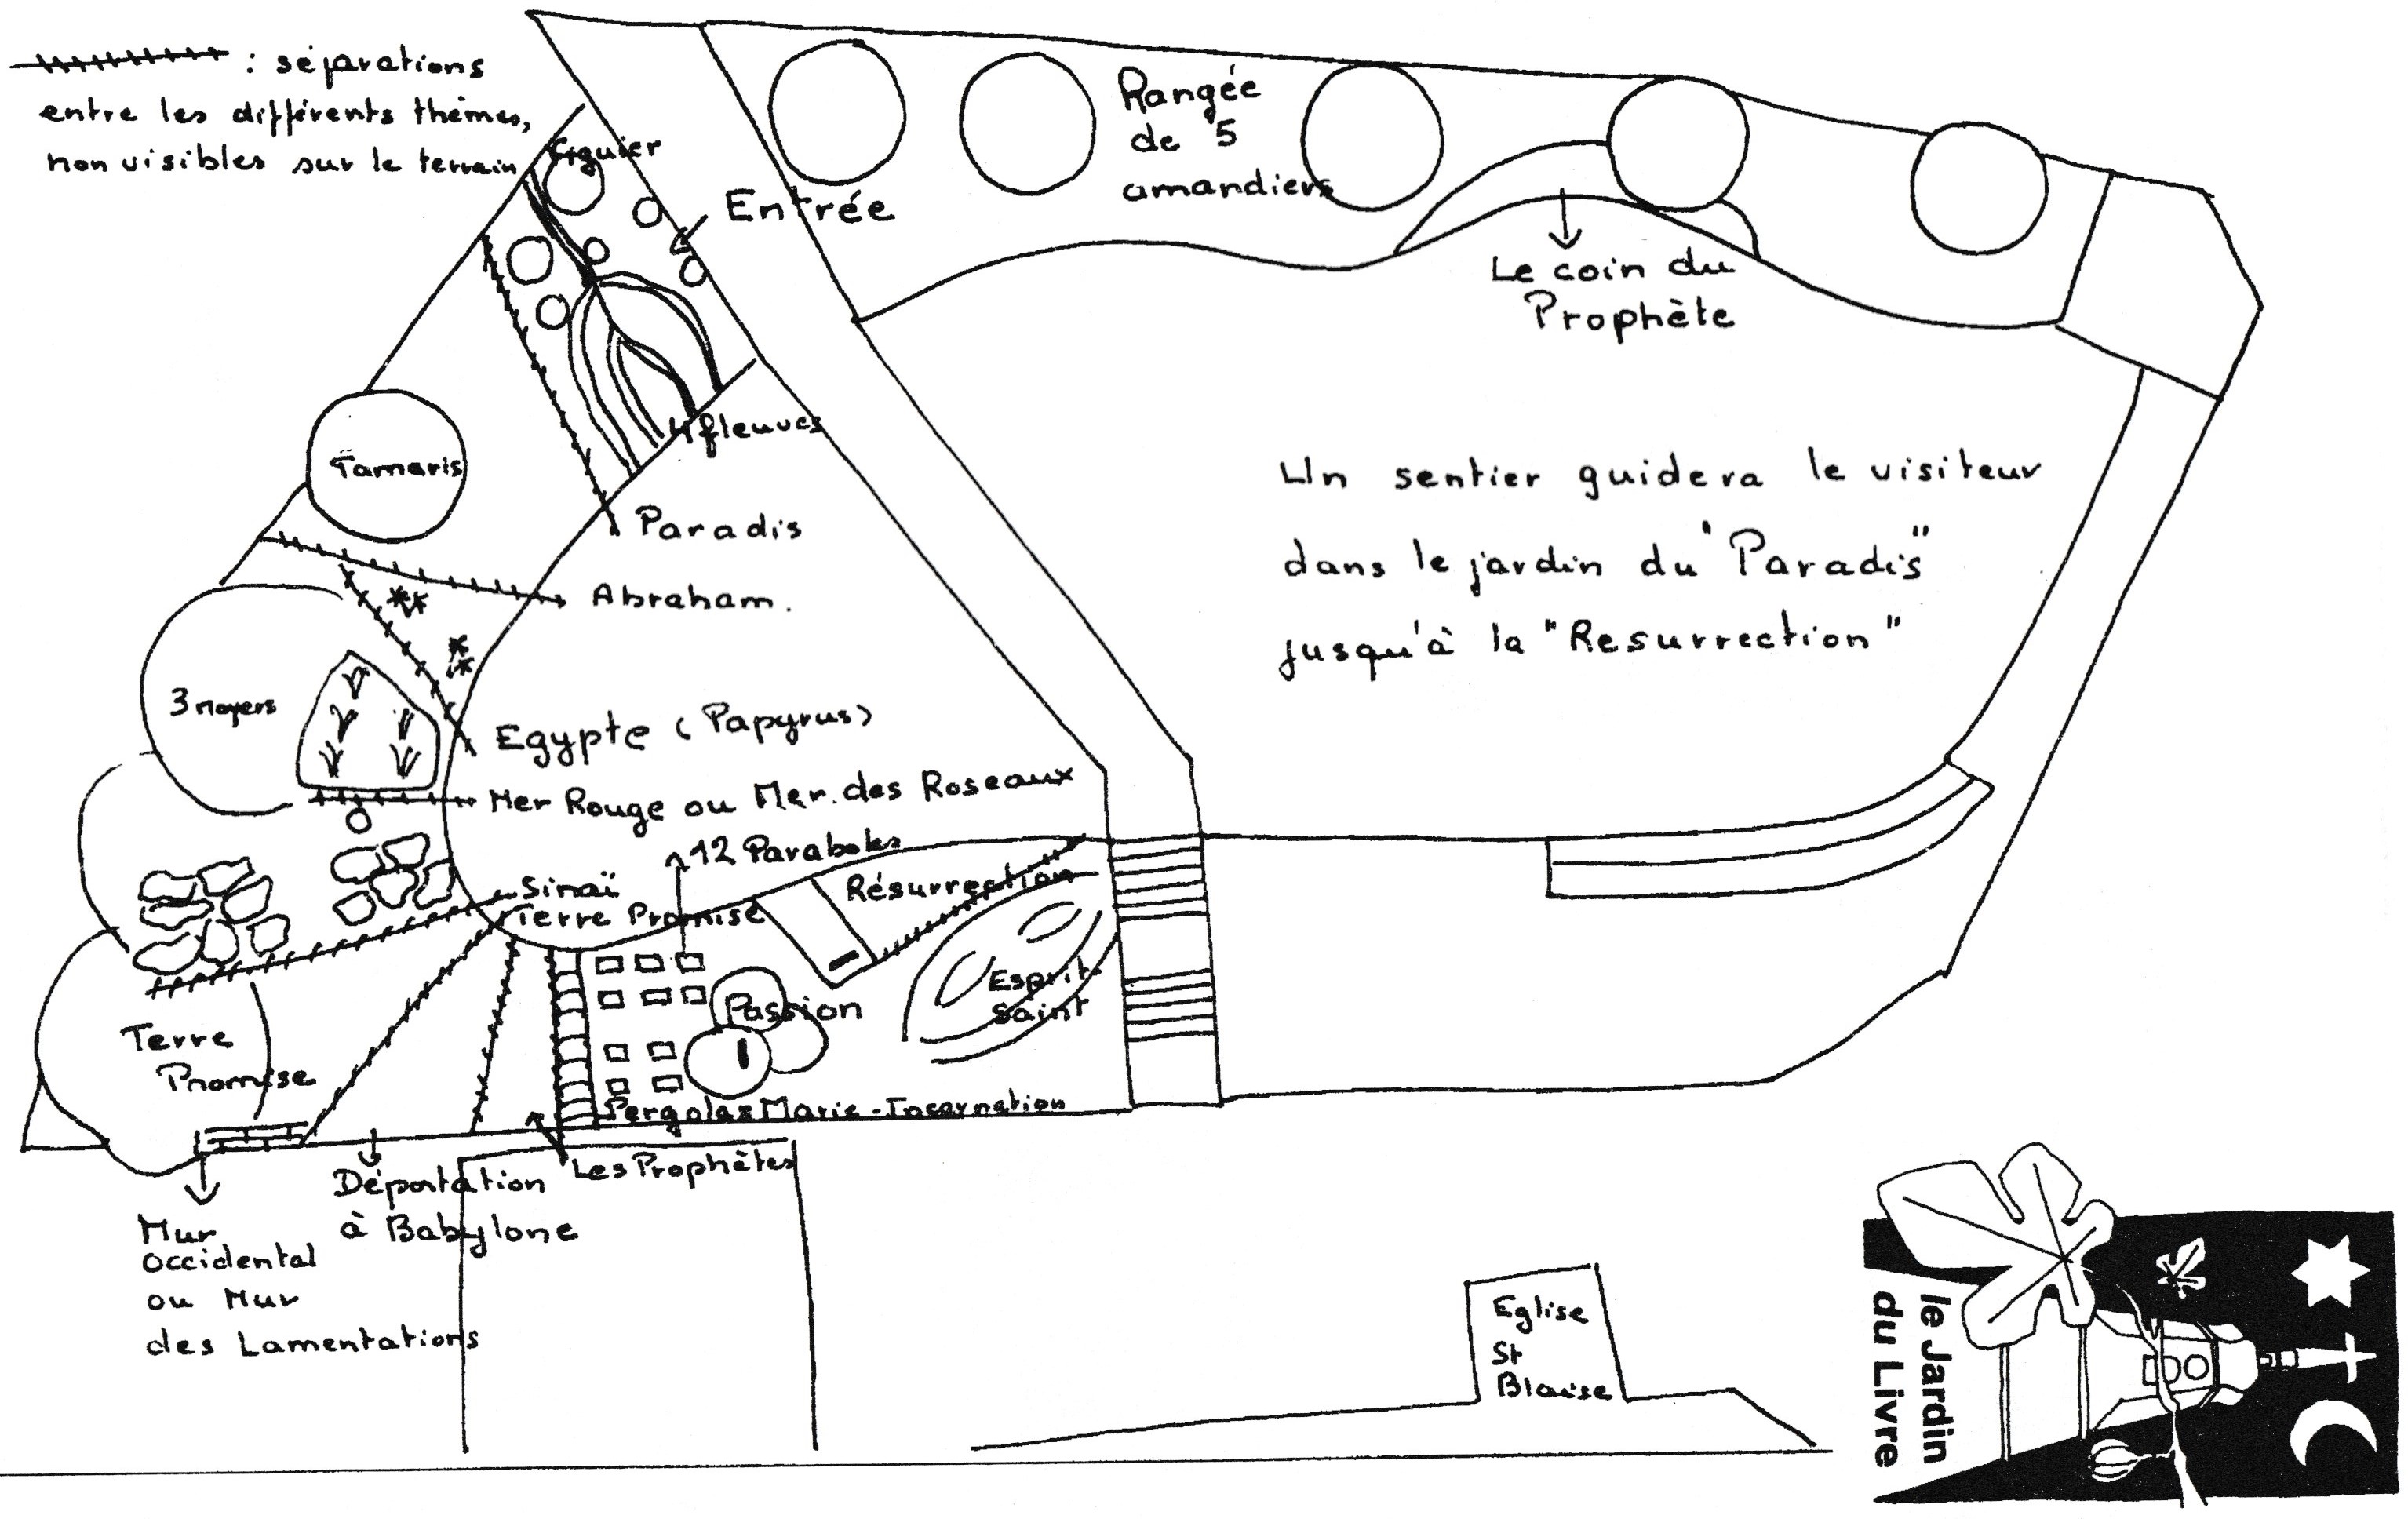 : séparations
entre les différents thèmes,
non visibles sur le terrain
Figuier
Entrée
Rangée
de 5
amandiers
Le coin du
Prophète
4 fleuves
Tamaris
Paradis
Abraham.
Un sentier guidera le visiteur
dans le jardin du "Paradis"
jusqu'à la "Resurrection"
3 noyers
Egypte (Papyrus)
Mer Rouge ou Mer des Roseaux
12 Paraboles
Sinaï
Terre Promise
Résurrection
Passion
Esprit
Saint
Terre
Promise
Pergola: Marie-Incarnation
Les Prophètes
Déportation
à Babylone
Mur
Occidental
ou Mur
des Lamentations
Eglise
St
Blaise
le Jardin
du Livre